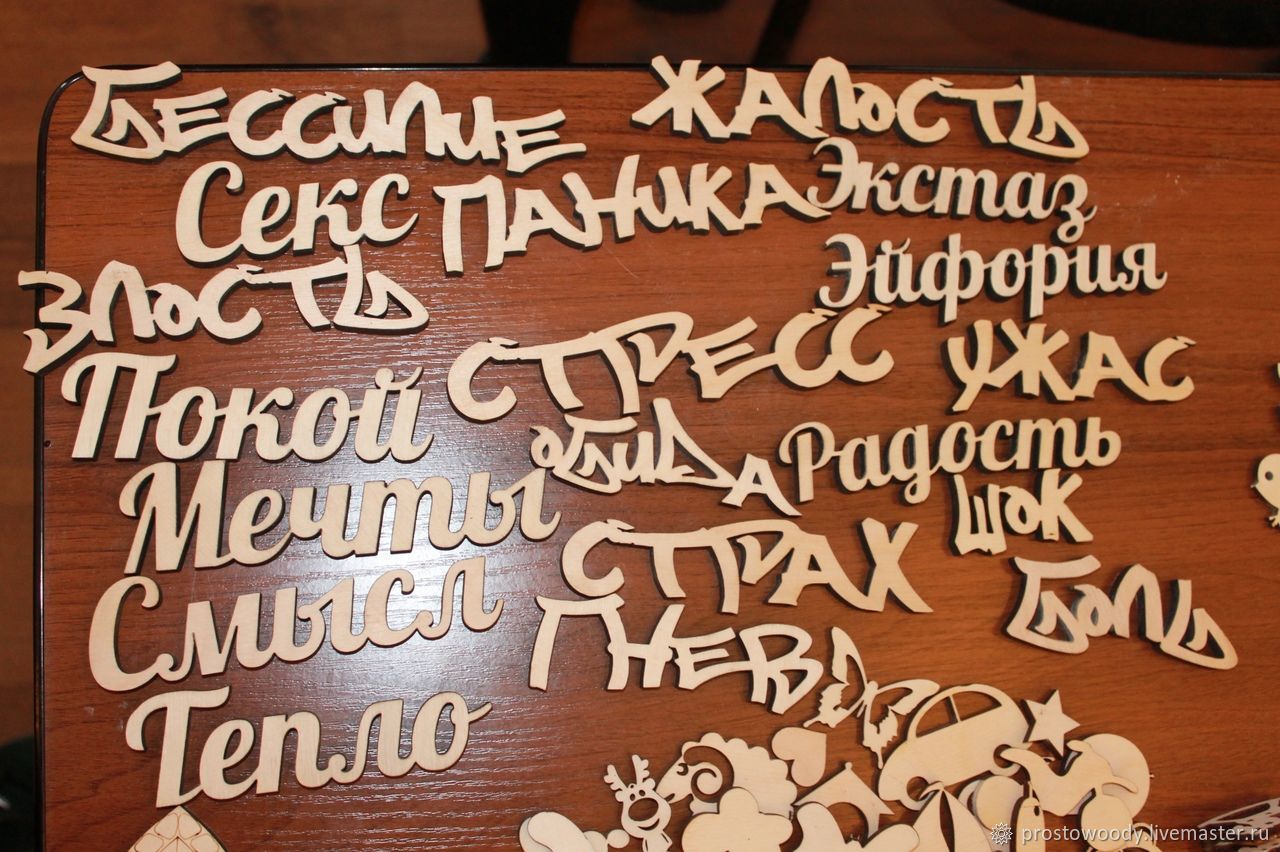 Бессилие
Жалость
Секс
Паника
Экстаз
Эйфория
Злость
Стресс
Ужас
Покой
Обида
Радость
Мечты
Шок
Страх
Смысл
Боль
Гнев
Тепло
prostowoody.livemaster.ru